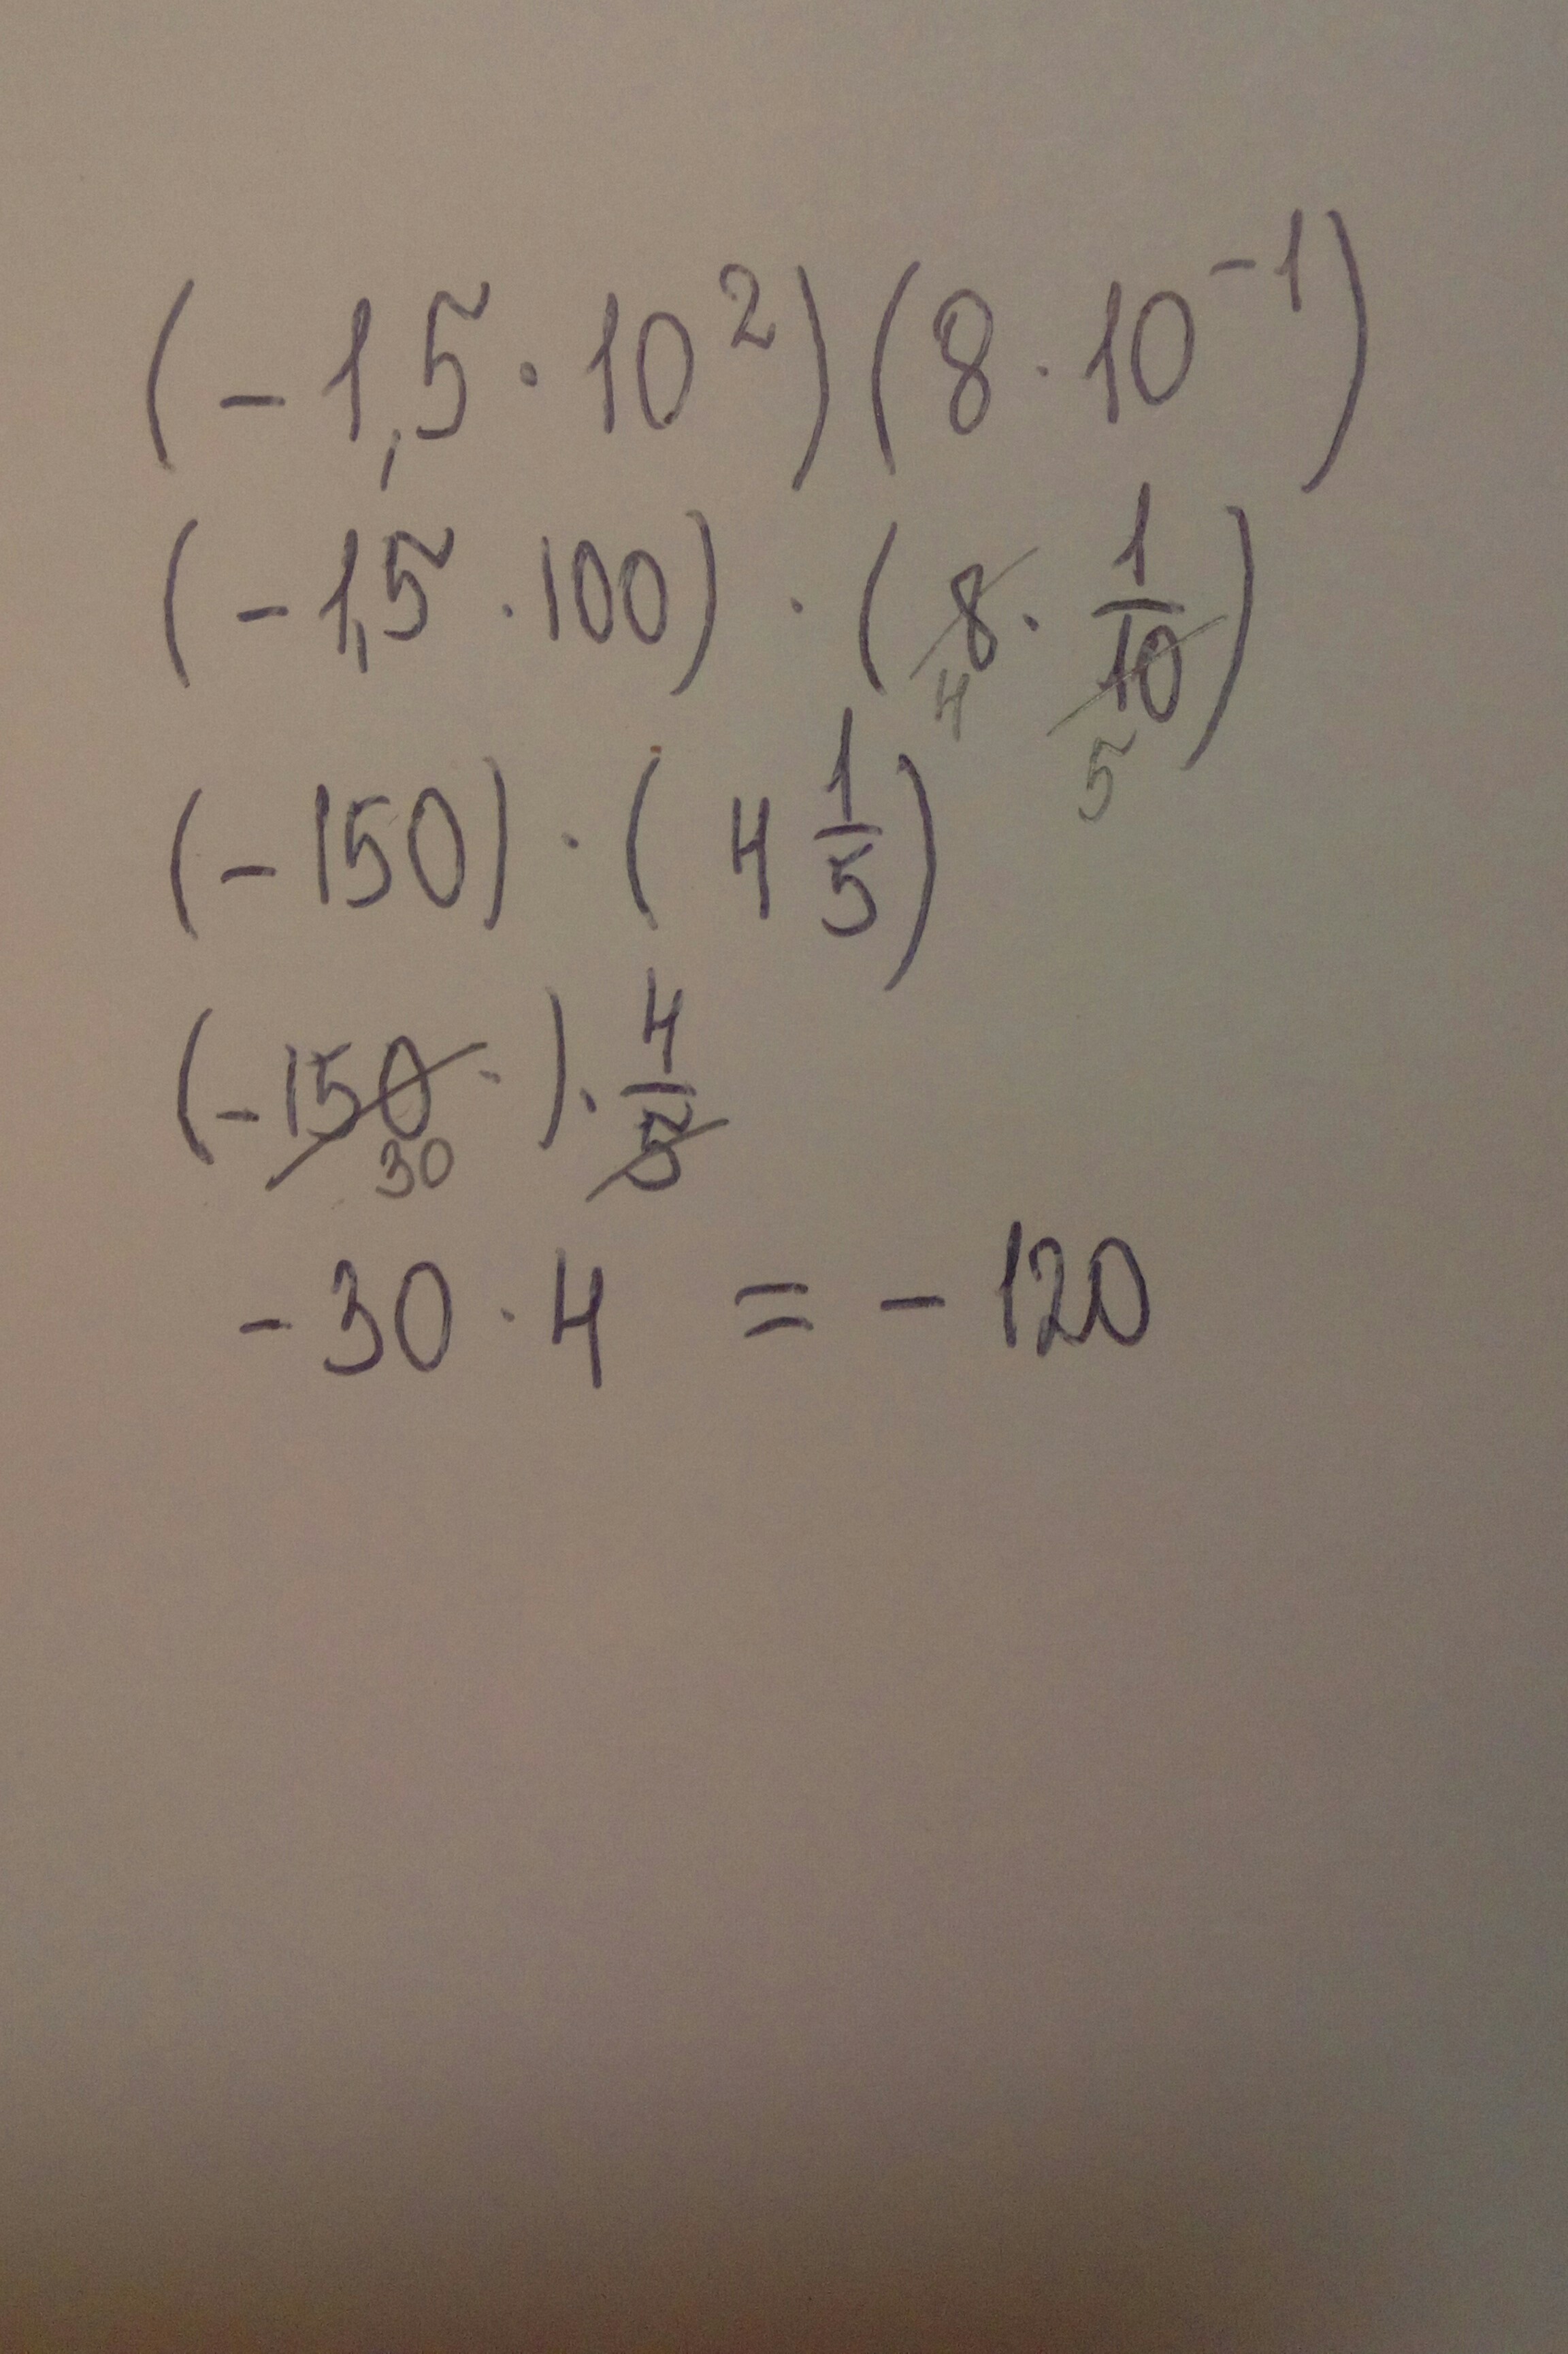 (-1,5·10²)(8·10⁻¹)
(-1,5·100)·(8·1/10) 4 5
(-150)·(4 1/5)
(-150·)·4/5 30
-30·4 = -120